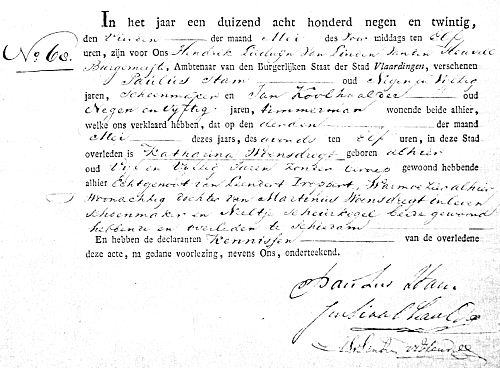 In het jaar een duizend acht honderd negen en twintig,
den Vierden der maand Mei des Voor middags ten Elf
No 60. uren, zijn voor Ons Hendrik Ludwijn Van Linden Van den Heuvell
Burgemeest, Ambtenaar van den Burgerlijken Staat der Stad Vlaardingen, verschenen
Paulus Stam oud Negen en Veertig
jaren, Scheenmaker en Jan
Negen en Vyftig jaren, Timmerman wonende beide alhier,
welke ons verklaard hebben, dat op den derden der maand
Mei dezes jaars, des avonds ten Elf uren, in deze Stad
overleden is Katharina Woensdregt geboren alhier
oud Vyf en Veertig Jaren Zonder beroep gewoond hebbende
alhier Echtgenoot van Leendert Warmoezier alhier
Woonachtig dochter van Martinus Woensdregt in leven
Scheenmaker en Neeltje beide gewoond
hebbende en overleden te Schiedam
En hebben de declaranten Kennissen van de overledene
deze acte, na gedane voorlezing, nevens Ons, onderteekend.
Paulus Stam